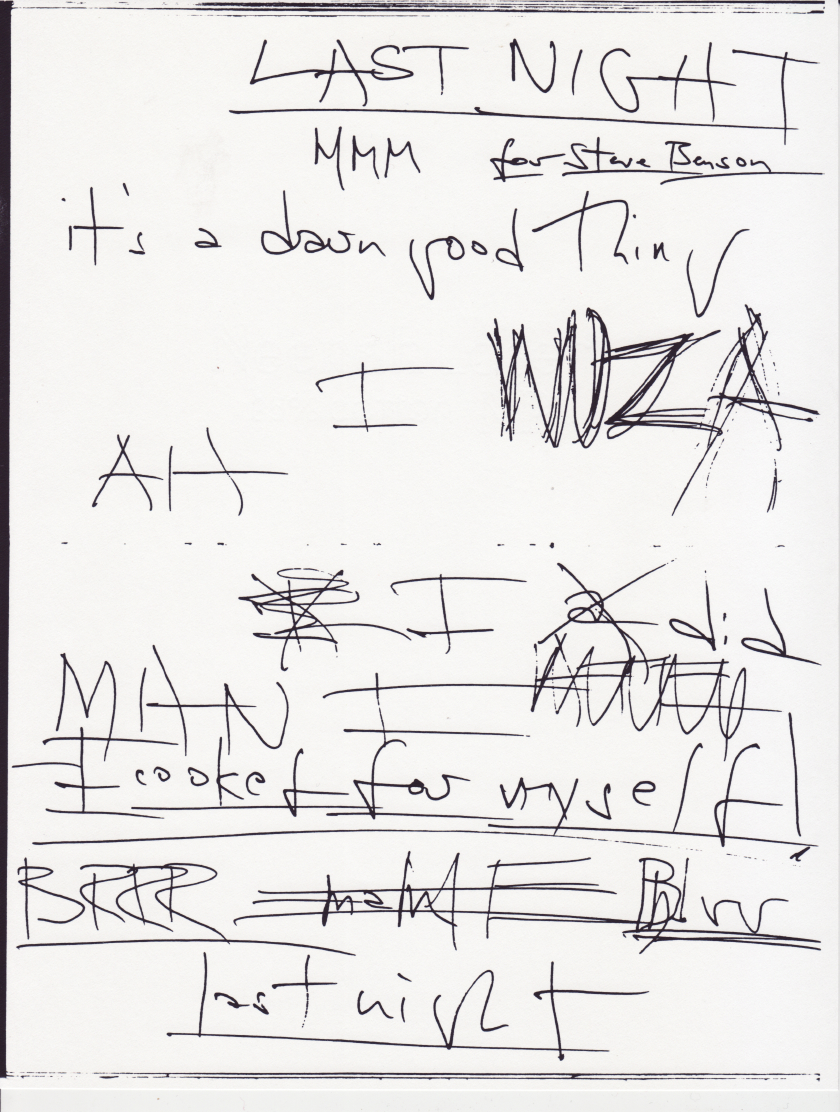 LAST NIGHT
MMM for Steve Benson
it's a darn good thing
I
AH
I did
MAN I
I cooked for myself!
BRRR Blrr
last night